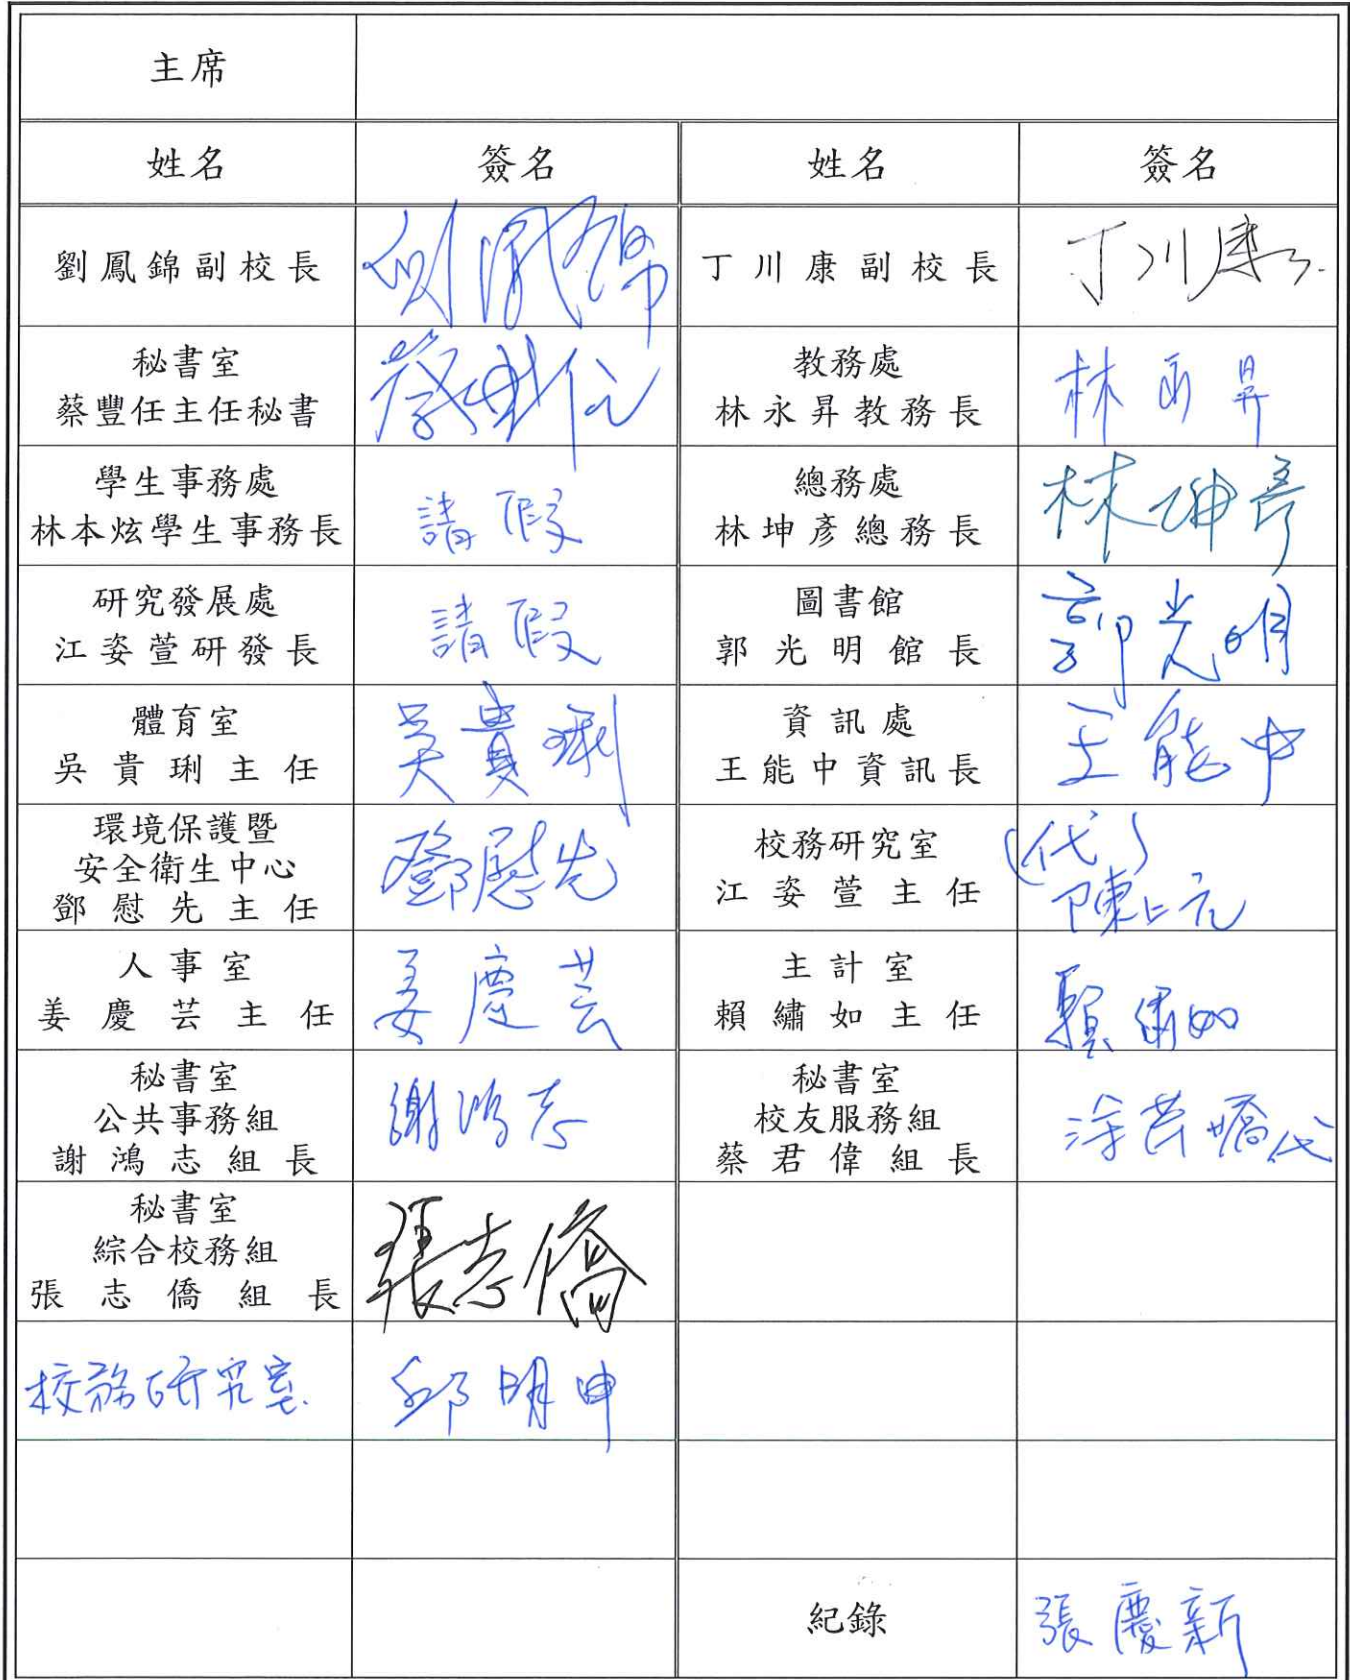 主席
姓名 簽名 姓名 簽名
劉鳳錦副校長 劉鳳錦 丁川康副校長 丁川康
秘書室
蔡豐任主任秘書 蔡豐任
教務處
林永昇教務長 林永昇
學生事務處
林本炫學生事務長 請假
總務處
林坤彥總務長 林坤彥
研究發展處
江姿萱研發長 請假
圖書館
郭光明館長 郭光明
體育室
吳貴琍主任 吳貴琍
資訊處
王能中資訊長 王能中
環境保護暨
安全衛生中心
鄧慰先主任 鄧慰先
校務研究室
江姿萱主任
(代)
陳上元
人事室
姜慶芸主任 姜慶芸
主計室
賴繡如主任 賴繡如
秘書室
公共事務組
謝鴻志組長 謝鴻志
秘書室
校友服務組
蔡君偉組長 代
秘書室
綜合校務組
張志僑組長 張志僑
校務研究室 邱明申
紀錄 張慶新